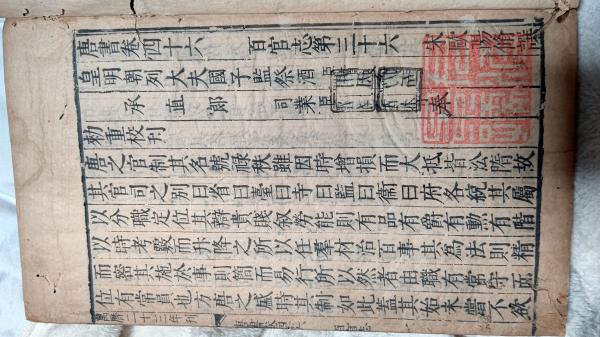 唐書卷四十六 百官志第三十六 宋歐陽脩撰
皇明朝列大夫國子監祭酒臣 奉
承直郎 司業臣
勑重校刊
唐之官制其名號祿秩雖因時增損而大抵皆沿隋故
其官司之别曰省曰臺曰寺曰監曰衞曰府各統其屬
以分職定位其辯貴賤叙勞能則有品有爵有勳有階
以時考覈而升降之所以任羣材治百事其為法則精
而密其施於事則簡而易行所以然者由職有常守而
位有常員也方唐之盛時其制如此蓋其始未嘗不欲
萬曆二十三年刊